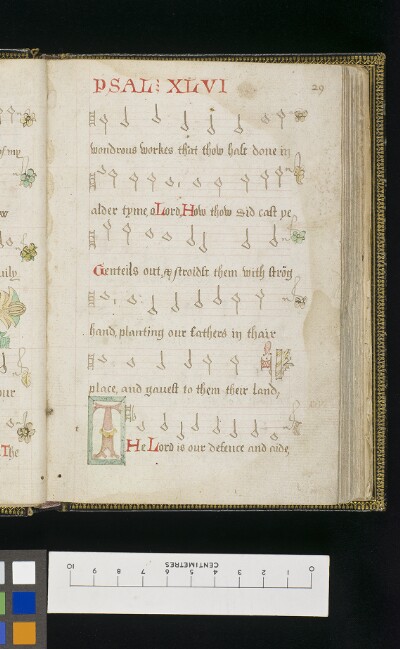 PSAL: XLVI
29
wondrous workes that thow hast done in
alder tyme, o Lord, How thow did cast ye
Genteils out, & stroidst them with strōg
hand, planting our fathers in thair
place, and gauest to them their land,
THe Lord is our defence and aide,
of my
uily
our
The
CENTIMETRES
10 9 8 7 6 5 4 3 2 1 0